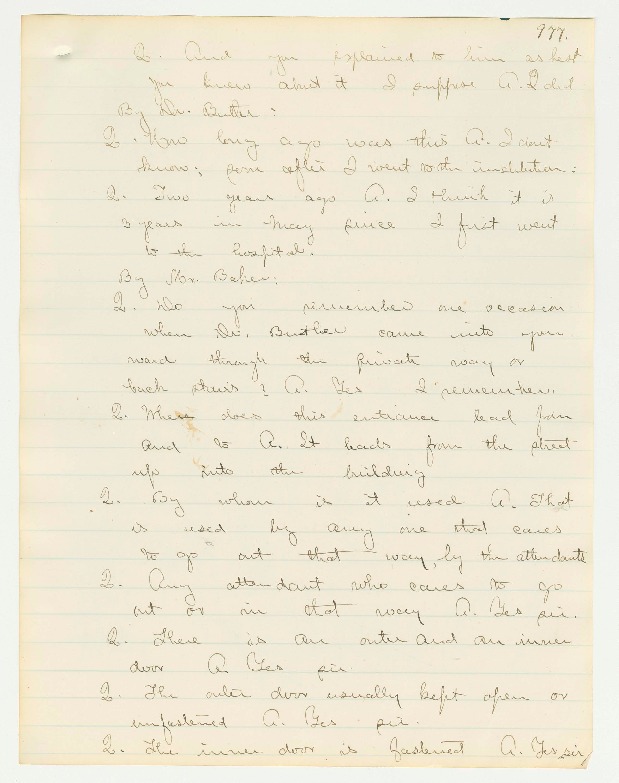 977.
Q. And you explained to him as best
you knew about it I suppose A. I did
By Dr. Buttler:
Q. How long ago was this A. I dont
know; soon after I went to the institution:
Q. Two years ago A. I think it is
3 years in May since I first went
to the hospital.
By Mr. Baker:
Q. Do you remember one occasion
when Dr. Buttler came into your
ward through the private way or
back stairs? A. Yes I remember.
Q. Where does this entrance lead from
and to A. It leads from the street
up into the building
Q. By whom is it used A. That
is used by any one that cares
to go out that way, by the attendants
Q. Any attendant who cares to go
out or in that way A. Yes sir.
Q. There is an outer and an inner
door A. Yes sir
Q. The outer door usually kept open or
unfastened A. Yes sir.
Q. The inner door is fastened A. Yes sir